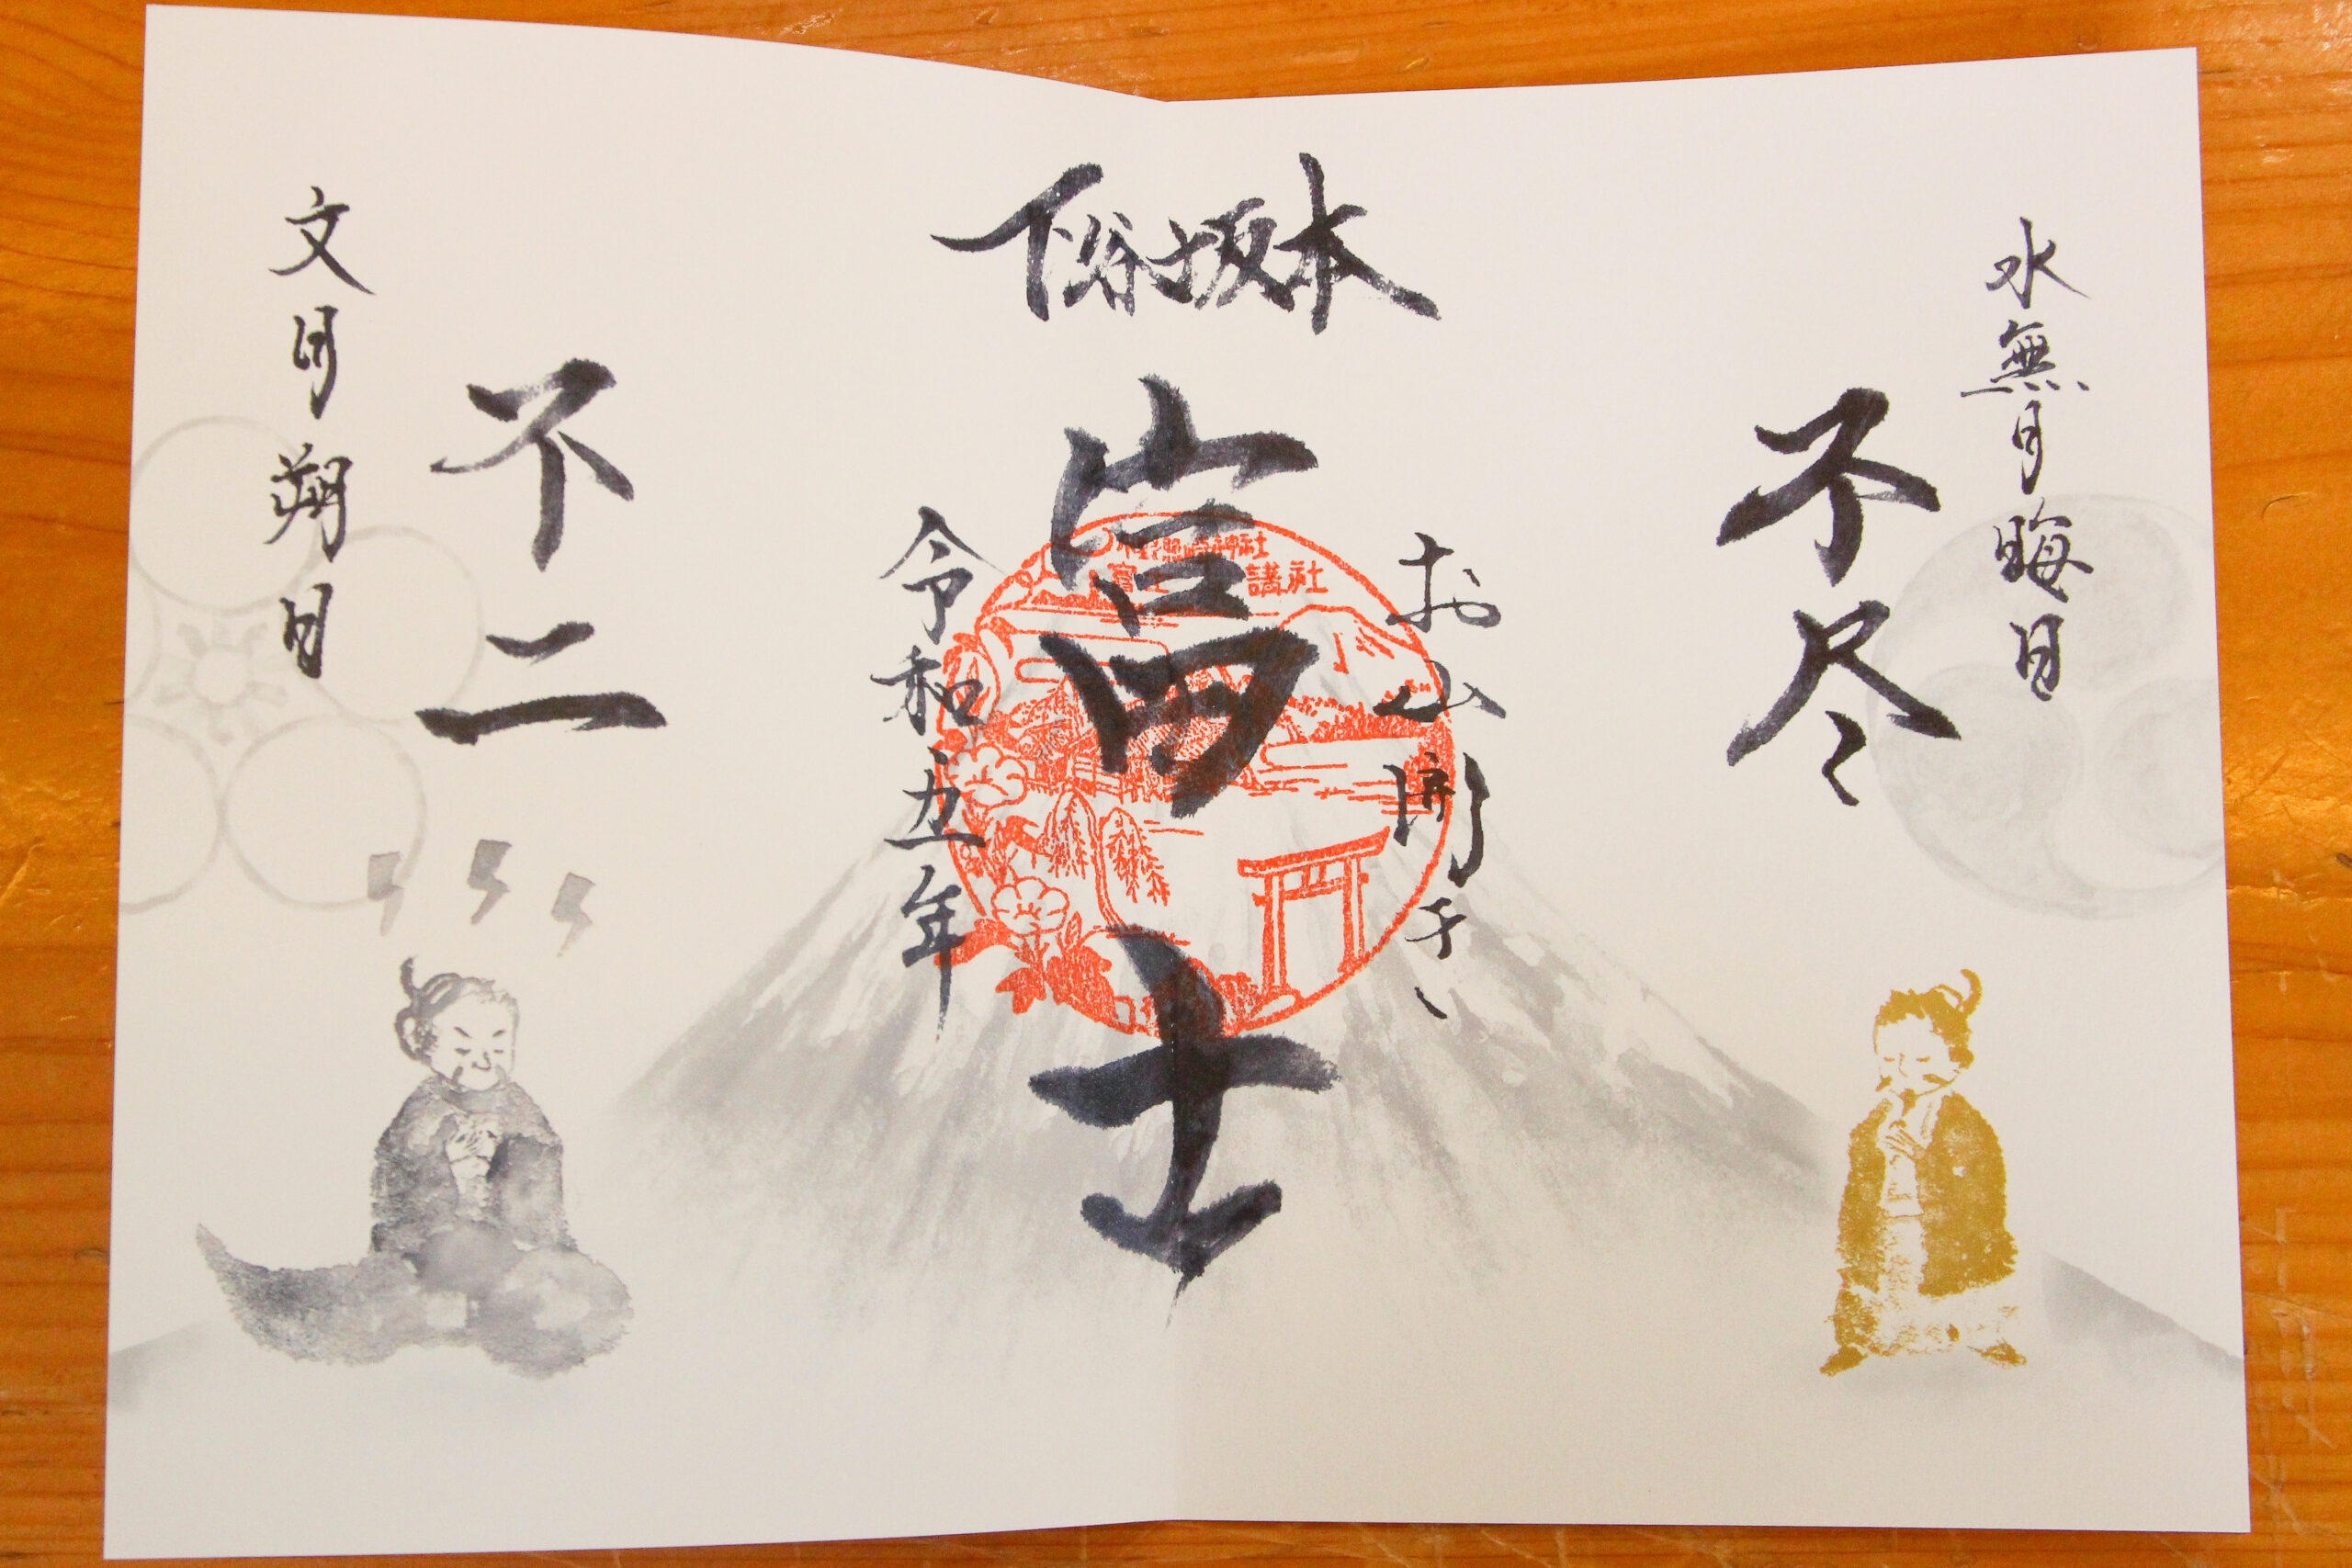 水無月晦日
不尽
下谷坂本
お山開き
富士
令和五年
小野照崎神社
講社
不二
文月朔日